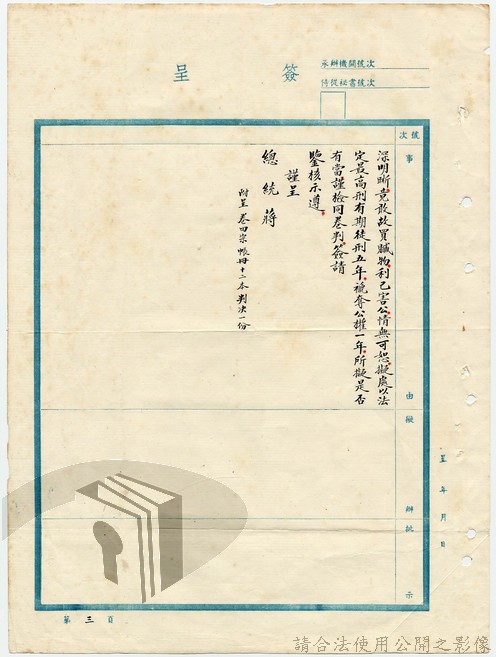 簽呈
承辦機關號次
侍從祕書號次
號次
事由
擬辦
批示
深明晰,竟敢故買贓物,利己害公,情無可恕,擬處以法
定最高刑有期徒刑五年,褫奪公權一年,所擬是否
有當,謹檢同卷判,簽請
鑒核示遵。
謹呈
總統 蔣
附呈 卷四宗 帳冊十二本 判決一份
年 月 日
第 三 頁
請合法使用公開之影像